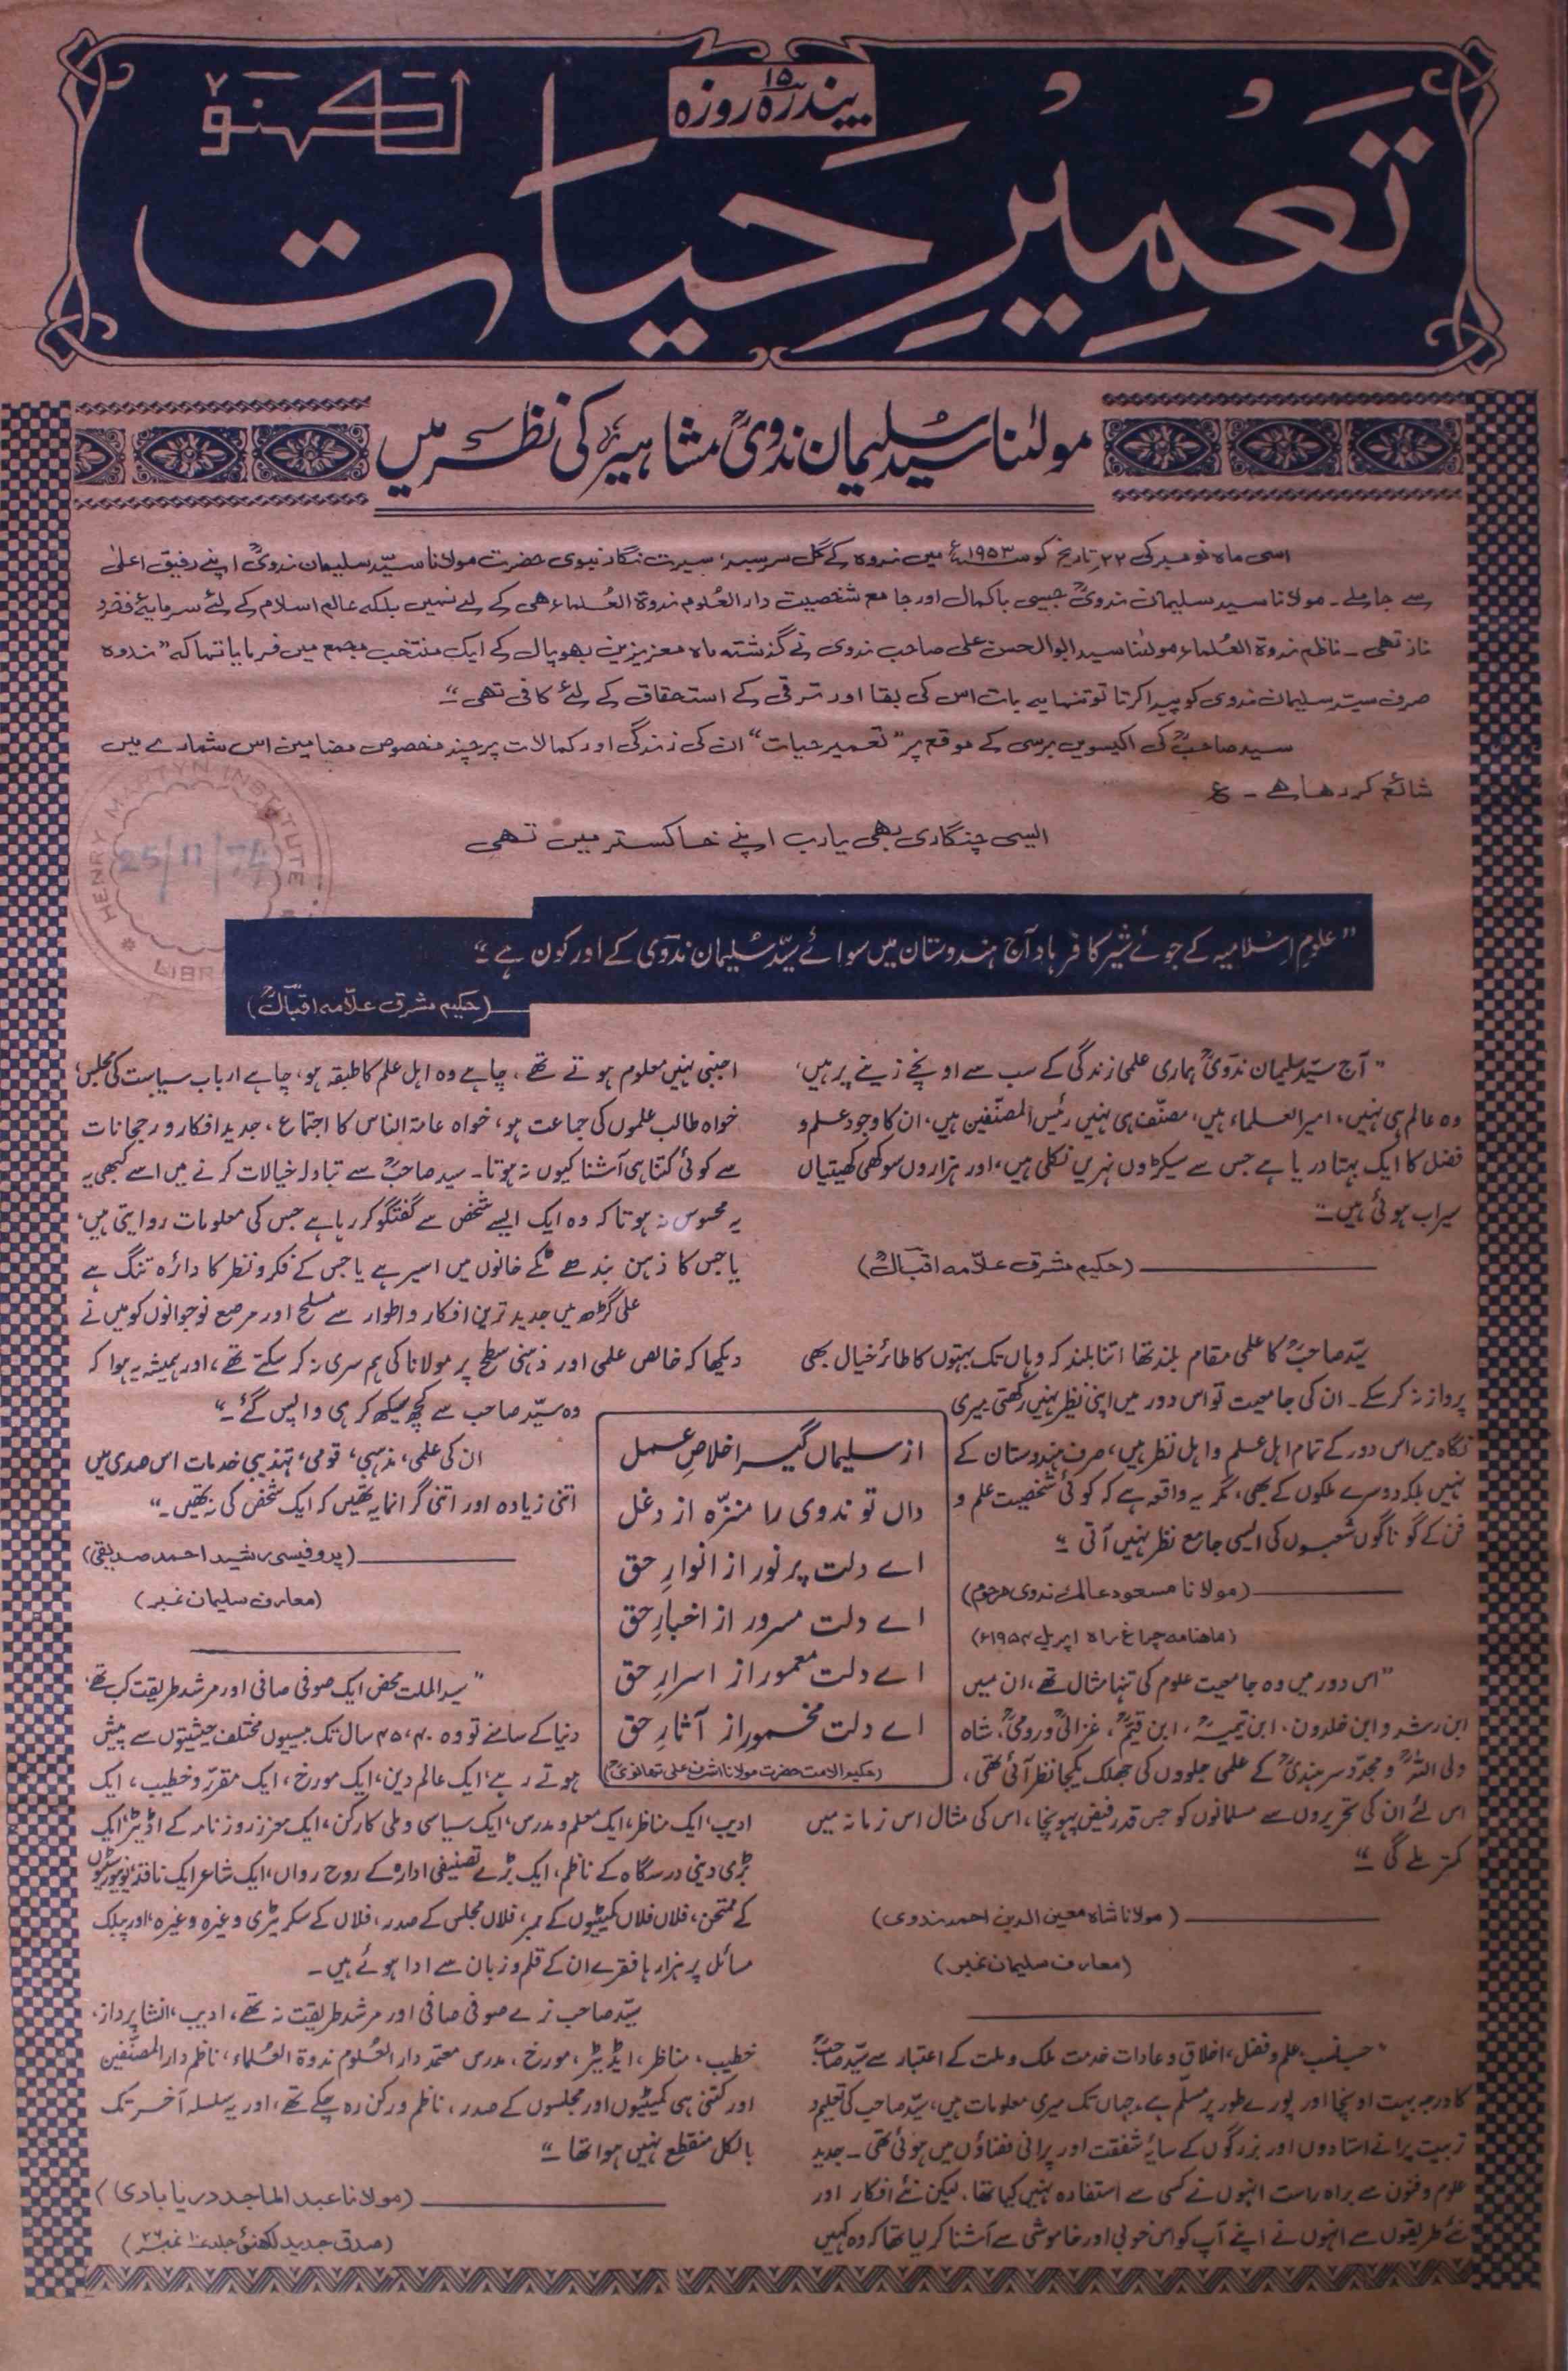 پندرہ ۱۵ روزہ
تعمیر حیات
لکھنؤ
مولٰنا سید سلیمان ندویؒ مشاہیر کی نظر میں
اسی ماہ نومبر کی ۲۲ تاریخ کو سنہ ۱۹۵۳ء میں ندوہ کے گل سرسبد، سیرت نگار نبوی حضرت مولانا سیّد سلیمان ندویؒ اپنے رفیق اعلیٰ
سے جا ملے ۔ مولانا سید سلیمان ندویؒ جیسی باکمال اور جامع شخصیت دار العلوم ندوۃ العُلماء ھی کے لئے نہیں بلکہ عالم اسلام کے لئے سرمایۂ فخر و
ناز تھی ۔ ناظم ندوۃ العُلماء مولٰنا سید ابوالحسن علی صاحب ندوی نے گذشتہ ماہ معززین بھوپال کے ایک منتخب مجمع میں فرمایا تھا کہ "ندوہ
صرف سیّد سلیمان ندوی کو پیدا کرتا تو تنہا یہ بات اس کی بقا اور ترقی کے استحقاق کے لئے کافی تھی"
سید صاحبؒ کی اکیسویں برسی کے موقع پر "تعمیر حیات" ان کی زندگی اور کمالات پر چند مخصوص مضامین اس شمارے میں
شائع کر رھا ھے ۔ ع
ایسی چنگاری بھی یارب اپنے خاکستر میں تھی
HENRY MARTYN INSTITUTE
25/11/74
LIBR
"علومِ اسلامیہ کے جوئے شیر کا فرہاد آج ہندوستان میں سوائے سیّد سُلیمان ندوی کے اور کون ہے"
(حکیم مشرق علاّمہ اقبالؒ)
"آج سیّد سلیمان ندویؒ ہماری علمی زندگی کے سب سے اونچے زینے پر ہیں،
وہ عالم ہی نہیں، امیر العلماء ہیں، مصنّف ہی نہیں رئیس المصنّفین ہیں، ان کا وجود علم و
فضل کا ایک بہتا دریا ہے جس سے سیکڑوں نہریں نکلی ہیں، اور ہزاروں سوکھی کھیتیاں
سیراب ہوئی ہیں"
(حکیم مشرق علاّمہ اقبالؒ)
سیّد صاحبؒ کا علمی مقام بلند تھا اتنا بلند کہ وہاں تک بہتوں کا طائر خیال بھی
پرواز نہ کر سکے ۔ ان کی جامعیت تو اس دور میں اپنی نظیر نہیں رکھتی میری
نگاہ میں اس دور کے تمام اہل علم و اہل نظر ہیں، صرف ہندوستان کے
نہیں بلکہ دوسرے ملکوں کے بھی، مگر یہ واقعہ ہے کہ کوئی شخصیت علم و
فن کے گوناگوں شعبوں کی ایسی جامع نظر نہیں آتی"
(مولانا مسعود عالم ندوی مرحوم)
(ماھنامہ چراغ راہ اپریل ۱۹۵۴ء)
"اس دور میں وہ جامعیت علوم کی تنہا مثال تھے، ان میں
ابن رشد و ابن خلدون، ابن تیمیہؒ، ابن قیمؒ، غزالیؒ و رومیؒ، شاہ
ولی اللہؒ و مجدّد سرہندیؒ کے علمی جلووں کی جھلک یکجا نظر آئی تھی،
اس لئے ان کی تحریروں سے مسلمانوں کو جس قدر فیض پہونچا، اس کی مثال اس زمانہ میں
کمتر ملے گی"
(مولانا شاہ معین الدین احمد ندوی)
(معارف سلیمان نمبر)
"حسب نسب، علم و فضل، اخلاق و عادات خدمت ملک و ملت کے اعتبار سے سیّد صاحبؒ
کا درجہ بہت اونچا اور پورے طور پر مسلّم ہے۔ جہاں تک میری معلومات ہیں، سیّد صاحب کی تعلیم و
تربیت پرانے استادوں اور بزرگوں کے سایۂ شفقت اور پرانی فضاؤں میں ہوئی تھی ۔ جدید
علوم و فنون سے براہ راست انہوں نے کسی سے استفادہ نہیں کیا تھا، لیکن نئے افکار اور
نئے طریقوں سے انہوں نے اپنے آپ کو اس خوبی اور خاموشی سے آشنا کر لیا تھا کہ وہ کہیں
اجنبی نہیں معلوم ہوتے تھے، چاہے وہ اہل علم کا طبقہ ہو، چاہے ارباب سیاست کی مجلس،
خواہ طالب علموں کی جماعت ہو، خواہ عامۃ الناس کا اجتماع، جدید افکار و رجحانات
سے کوئی کتنا ہی آشنا کیوں نہ ہوتا۔ سید صاحبؒ سے تبادلہ خیالات کرنے میں اسے کبھی یہ
یہ محسوس نہ ہوتا کہ وہ ایک ایسے شخص سے گفتگو کر رہا ہے جس کی معلومات روایتی ہیں،
یا جس کا ذہن بندھے ٹکے خانوں میں اسیر ہے یا جس کے فکر و نظر کا دائرہ تنگ ہے
علی گڑھ میں جدید ترین افکار و اطوار سے مسلح اور مرصع نوجوانوں کو میں نے
دیکھا کہ خالص علمی اور ذہنی سطح پر مولانا کی ہم سری نہ کر سکتے تھے، اور ہمیشہ یہ ہوا کہ
وہ سیّد صاحب سے کچھ سیکھ کر ہی واپس گئے۔"
ان کی علمی، مذہبی، قومی، تہذیبی خدمات اس صدی میں
اتنی زیادہ اور اتنی گرانمایہ تھیں کہ ایک شخص کی نہ تھیں۔"
(پروفیسر رشید احمد صدیقی)
(معارف سلیمان نمبر)
از سلیماں گیر اخلاصِ عمل
داں تو ندوی را منزّہ از دغل
اے دلت پرنور از انوارِ حق
اے دلت مسرور از اخبارِ حق
اے دلت معمور از اسرارِ حق
اے دلت مخمور از آثارِ حق
(حکیم الامت حضرت مولانا اشرف علی تھانویؒ)
"سید الملت محض ایک صوفی صافی اور مرشد طریقت کب تھے،
دنیا کے سامنے تو وہ ۴۰، ۴۵ سال تک بیسیوں مختلف حیثیتوں سے پیش
ہوتے رہے، ایک عالم دین، ایک مورخ، ایک مقرّر و خطیب، ایک
ادیب، ایک مناظر، ایک معلم و مدرس، ایک سیاسی و ملی کارکن، ایک معزز روزنامہ کے اڈیٹر، ایک
بڑی دینی درسگاہ کے ناظم، ایک بڑے تصنیفی ادارہ کے روح رواں، ایک شاعر ایک ناقد، یونیورسٹیوں
کے ممتحن، فلاں فلاں کمیٹیوں کے ممبر، فلاں مجلس کے صدر، فلاں کے سکریٹری وغیرہ وغیرہ، اور پبلک
مسائل پر ہزارہا فقرے ان کے قلم و زبان سے ادا ہوئے ہیں ۔
سیّد صاحب نرے صوفی صافی اور مرشد طریقت نہ تھے، ادیب، انشا پرداز،
خطیب، مناظر، ایڈیٹر، مورخ، مدرس معتمد دار العُلوم ندوۃ العُلماء، ناظم دار المصنّفین
اور کتنی ہی کمیٹیوں اور مجلسوں کے صدر، ناظم و رکن رہ چکے تھے، اور یہ سلسلہ آخر تک
بالکل منقطع نہیں ہوا تھا"
(مولانا عبد الماجد دریابادی)
(صدق جدید لکھنؤ جلد ۱۰ نمبر ۲۶)